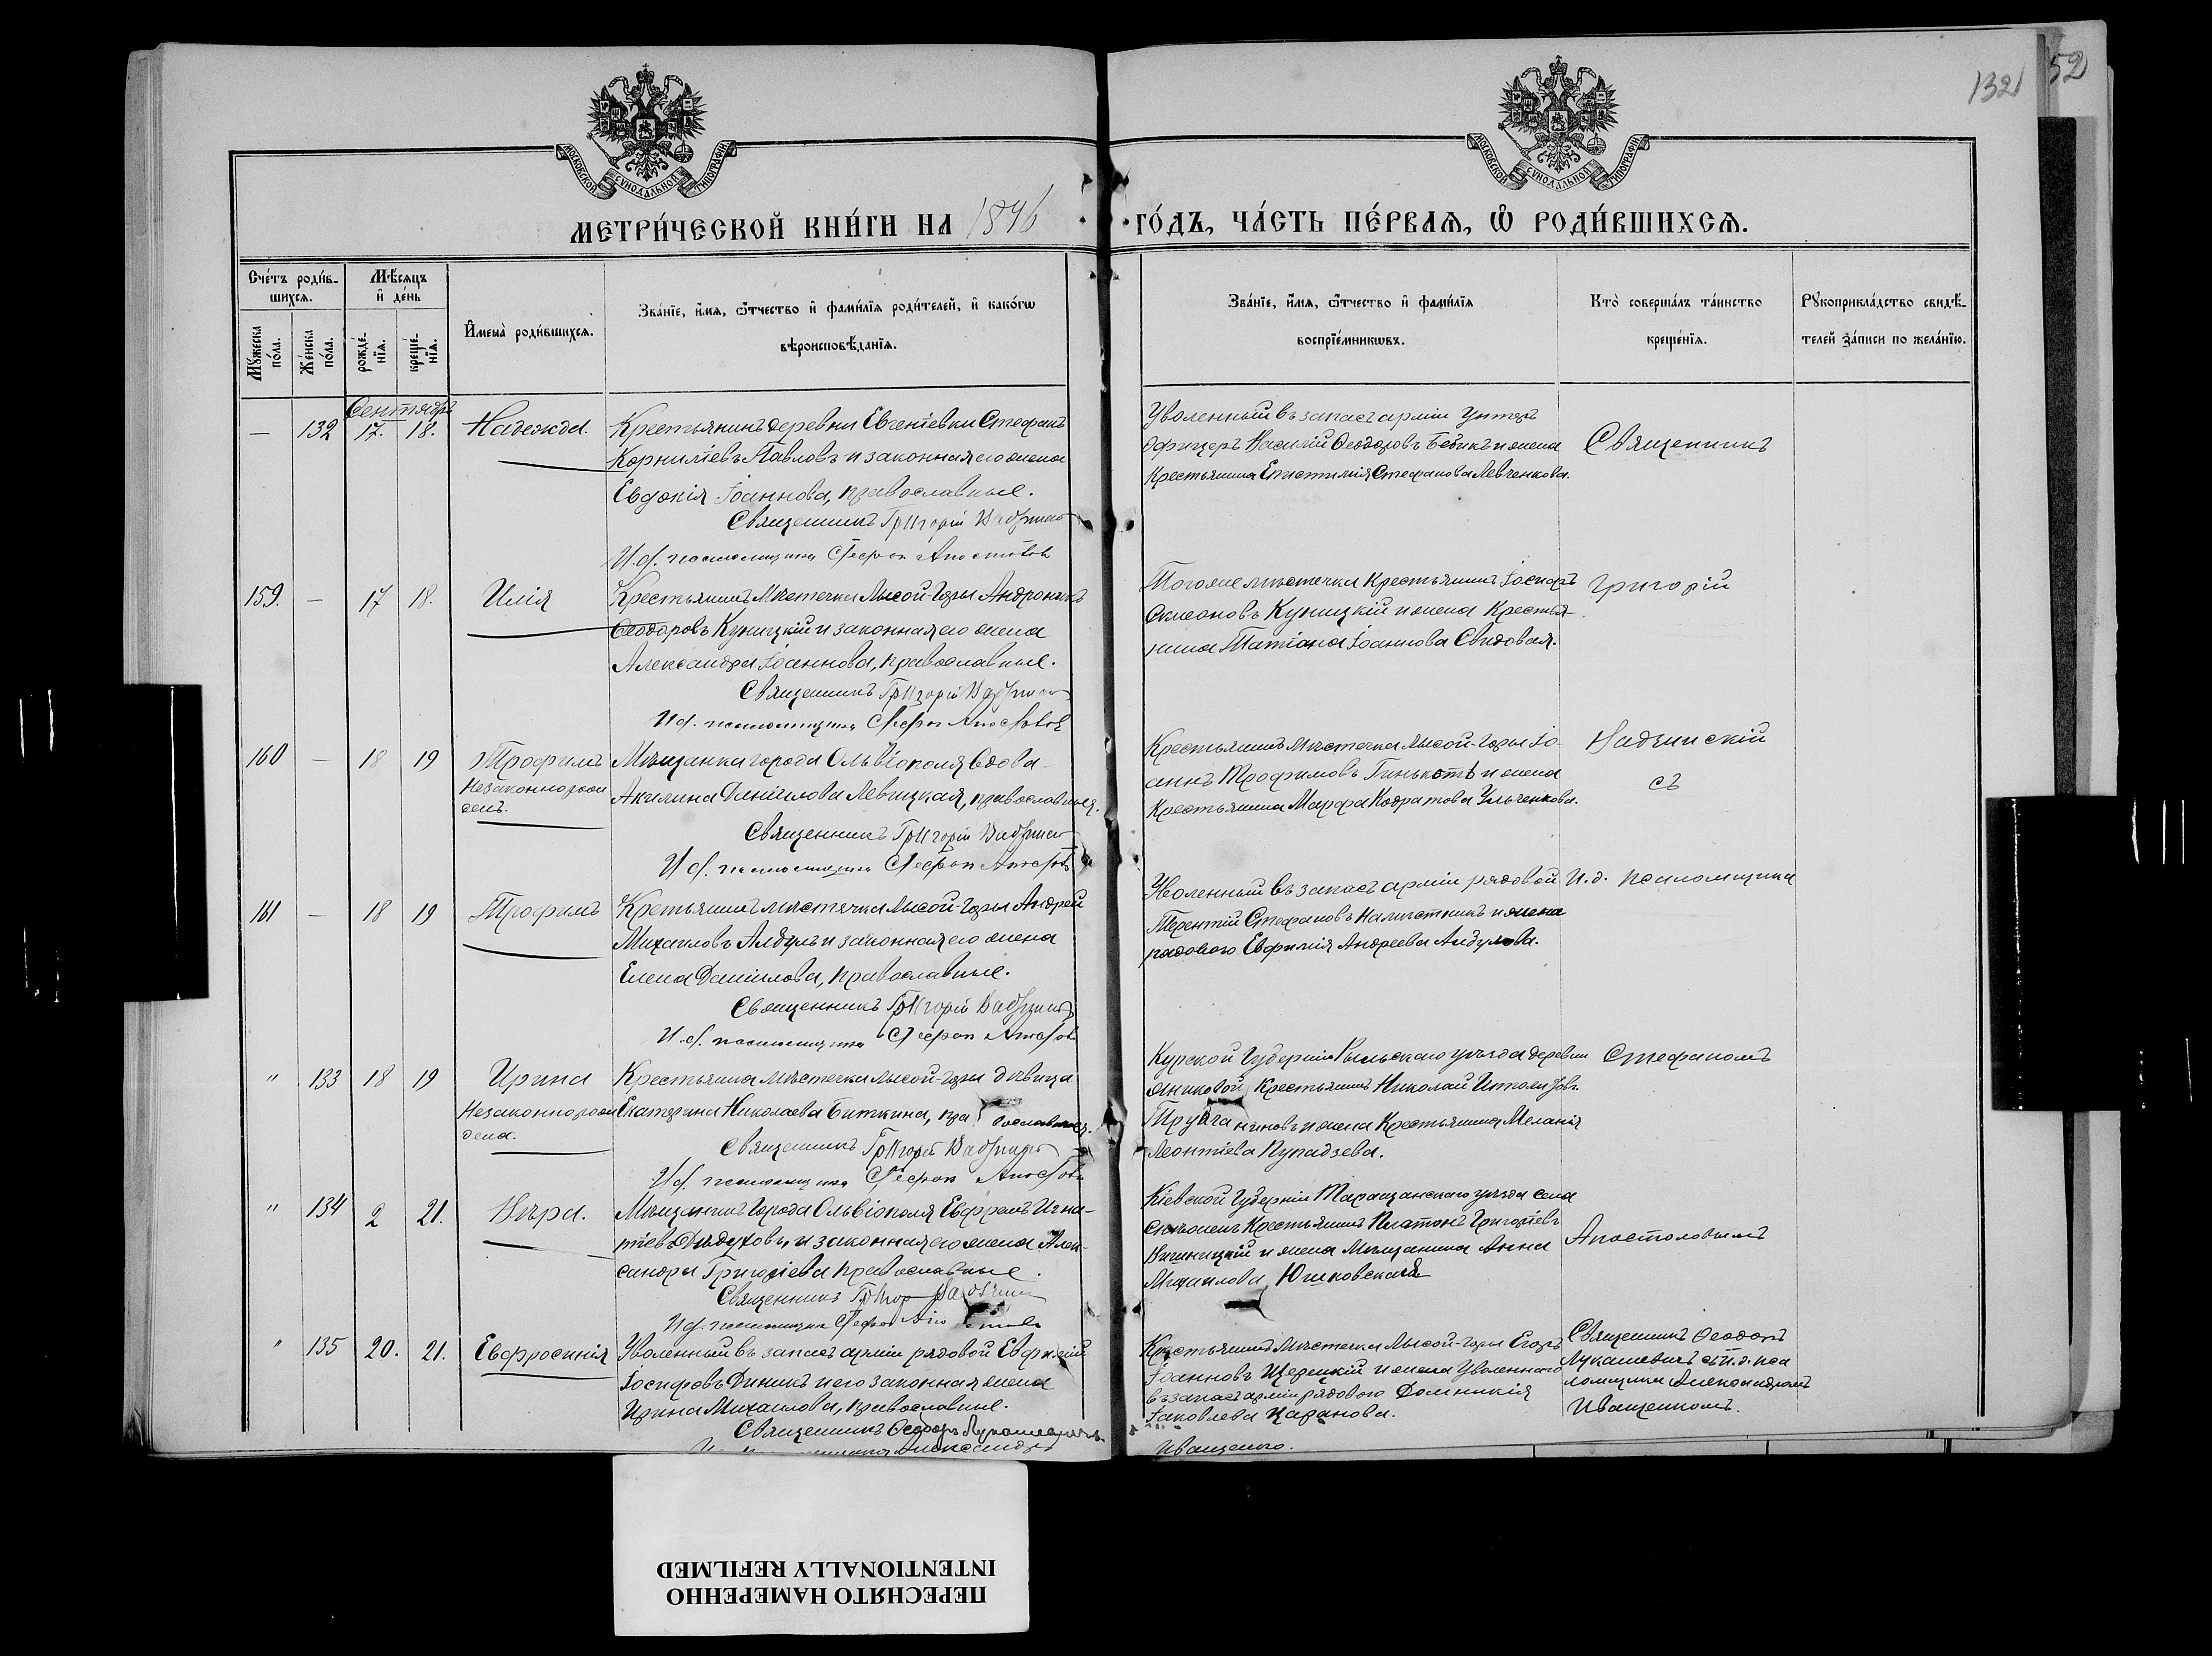 132
52
МОСКОВСКОЙ СѴНОДАЛЬНОЙ ТИПОГРАФІИ
МОСКОВСКОЙ СѴНОДАЛЬНОЙ ТИПОГРАФІИ
МЕТРИ́ЧЕСКОЙ КНИ́ГИ НА 1896 ГО́ДЪ, ЧА́СТЬ ПЕ́РВАѦ, Ѡ РОДИ́ВШИХСѦ.
Сче́тъ роди́вшихсѧ.
Мꙋ́жеска по́ла.
Же́нска по́ла.
Мѣ́сѧцъ и де́нь
рожде́нїѧ.
креще́нїѧ.
Имена̀ роди́вшихсѧ.
Зва́нїе, и́мѧ, ѻ́тчество и фами́лїѧ роди́телей, и како́гѡ
вѣроисповѣ́данїѧ.
Зва́нїе, и́мѧ, ѻ́тчество и фами́лїѧ
воспрїе́мникѡвъ.
Кто̀ соверша́лъ та́инство
креще́нїѧ.
Рꙋкоприкла́дство свидѣ́-
телей за́писи по жела́нїю.
Сентябрь
— 132 17. 18. Надежда.
Крестьянинъ деревни Евгеніевки Стефанъ
Корниліевъ Павловъ и законная его жена
Евдокія Іоаннова, православные.
Священникъ Григорій
И.д. псаломщика Стефан Апостолов
Уволенный въ запасъ арміи Унтеръ
Офицеръ Василій Ѳеодоровъ Бебикъ и жена
Крестьянина Епистимія Стефанова Левченкова.
Священникъ
159. — 17 18. Илія
Крестьянинъ Мѣстечка Лысой-Горы Андроникъ
Ѳеодоровъ Куницкій и законная его жена
Александра Іоаннова, православные.
Священникъ Григорій
И.д. псаломщика Стефан Апостолов
Тогоже мѣстечка Крестьянинъ Іосифъ
Симеоновъ Куницкій и жена Крестья-
нина Татіана Іоаннова Свидовая.
Григорій
160 — 18 19 Трофимъ
Незаконнорож
денъ.
Мѣщанка города Ольвіополя вдова
Акилина Даніилова Левицкая, православная.
Священникъ Григорій
И.д. псаломщика Стефан Апостолов
Крестьянинъ Мѣстечка Лысой-Горы Іо-
аннъ Трофимовъ и жена
Крестьянина Марфа Кодратова Ульченкова.
Надзинскій
съ
161 — 18 19 Трофимъ
Крестьянинъ мѣстечка Лысой-Горы Андрей
Михаиловъ Албулъ и законная его жена
Елена Даніилова, православные.
Священникъ Григорій
И.д. псаломщика Стефан Апостолов
Уволенный въ запасъ арміи рядовой
Терентій Стефановъ Намѣстникъ и жена
рядового Евфимія Андреева Албулова.
И.д. псаломщика
" 133 18 19 Ирина
Незаконнорож
дена.
Крестьянка мѣстечка Лысой-Горы дѣвица
Екатерина Николаева Биткина, православная.
Священникъ Григорій
И.д. псаломщика Стефан Апостолов
Курской Губерніи Рыльскаго уѣзда деревни
Крестьянинъ Николай
и жена Крестьянина Меланія
Леонтіева
Стефаномъ
" 134 2 21. Вѣра.
Мѣщанинъ Города Ольвіополя Ефремъ Игна-
тіевъ Дѣдуховъ, и законная его жена Алек-
сандра Григоріева православные.
Священникъ
И.д. псаломщика Стефан
Кіевской Губерніи Таращанскаго уѣзда села
Крестьянинъ Платонъ Григоріевъ
и жена Мѣщанина Анна
Михаилова Юшковская
Апостоловымъ
" 135 20. 21. Евфросинія
Уволенный въ запасъ арміи рядовой Евфимій
Іосифовъ Диникъ и его законная жена
Ирина Михаилова, православные.
Священникъ Ѳеодоръ Лукашевичъ
Александръ
Крестьянинъ Мѣстечка Лысой-Горы Егоръ
Іоанновъ Щербицкій и жена Уволеннаго
въ запасъ арміи рядового Домникія
Іаковлева Царанова.
Иващенко.
Священникъ Ѳеодоръ
Лукашевичъ съ и.д. пса
ломщика Александромъ
Иващенкомъ.
ПЕРЕСНЯТО НАМЕРЕННО
INTENTIONALLY REFILMED